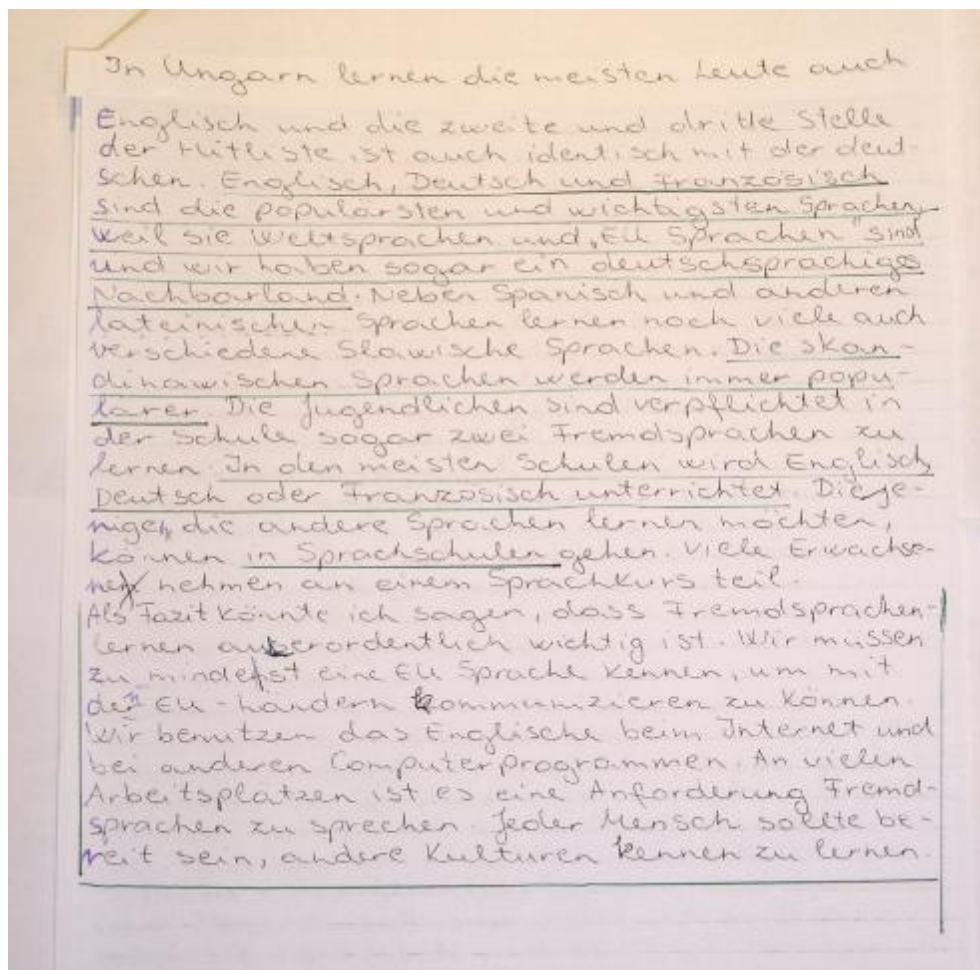 In Ungarn lernen die meisten Leute auch
Englisch und die zweite und dritte Stelle
der Hitliste ist auch identisch mit der deut-
schen. Englisch, Deutsch und Französisch
sind die populärsten und wichtigsten Sprachen,
weil sie Weltsprachen und „EU Sprachen" sind
und wir haben sogar ein deutschsprachiges
Nachbarland. Neben Spanisch und anderen
lateinischen Sprachen lernen noch viele auch
verschiedene Slawische Sprachen. Die skan-
dinawischen Sprachen werden immer popu-
lärer. Die Jugendlichen sind verpflichtet in
der Schule sogar zwei Fremdsprachen zu
lernen. In den meisten Schulen wird Englisch,
Deutsch oder Französisch unterrichtet. Dieje-
nigen, die andere Sprachen lernen möchten,
können in Sprachschulen gehen. Viele Erwachse-
ne nehmen an einem Sprachkurs teil.
Als Fazit könnte ich sagen, dass Fremdsprachen-
lernen außerordentlich wichtig ist. Wir müssen
zu mindest eine EU Sprache kennen, um mit
den EU-Ländern kommunizieren zu können.
Wir benutzen das Englische beim Internet und
bei anderen Computerprogrammen. An vielen
Arbeitsplätzen ist es eine Anforderung Fremd-
sprachen zu sprechen. Jeder Mensch sollte be-
reit sein, andere Kulturen kennen zu lernen.